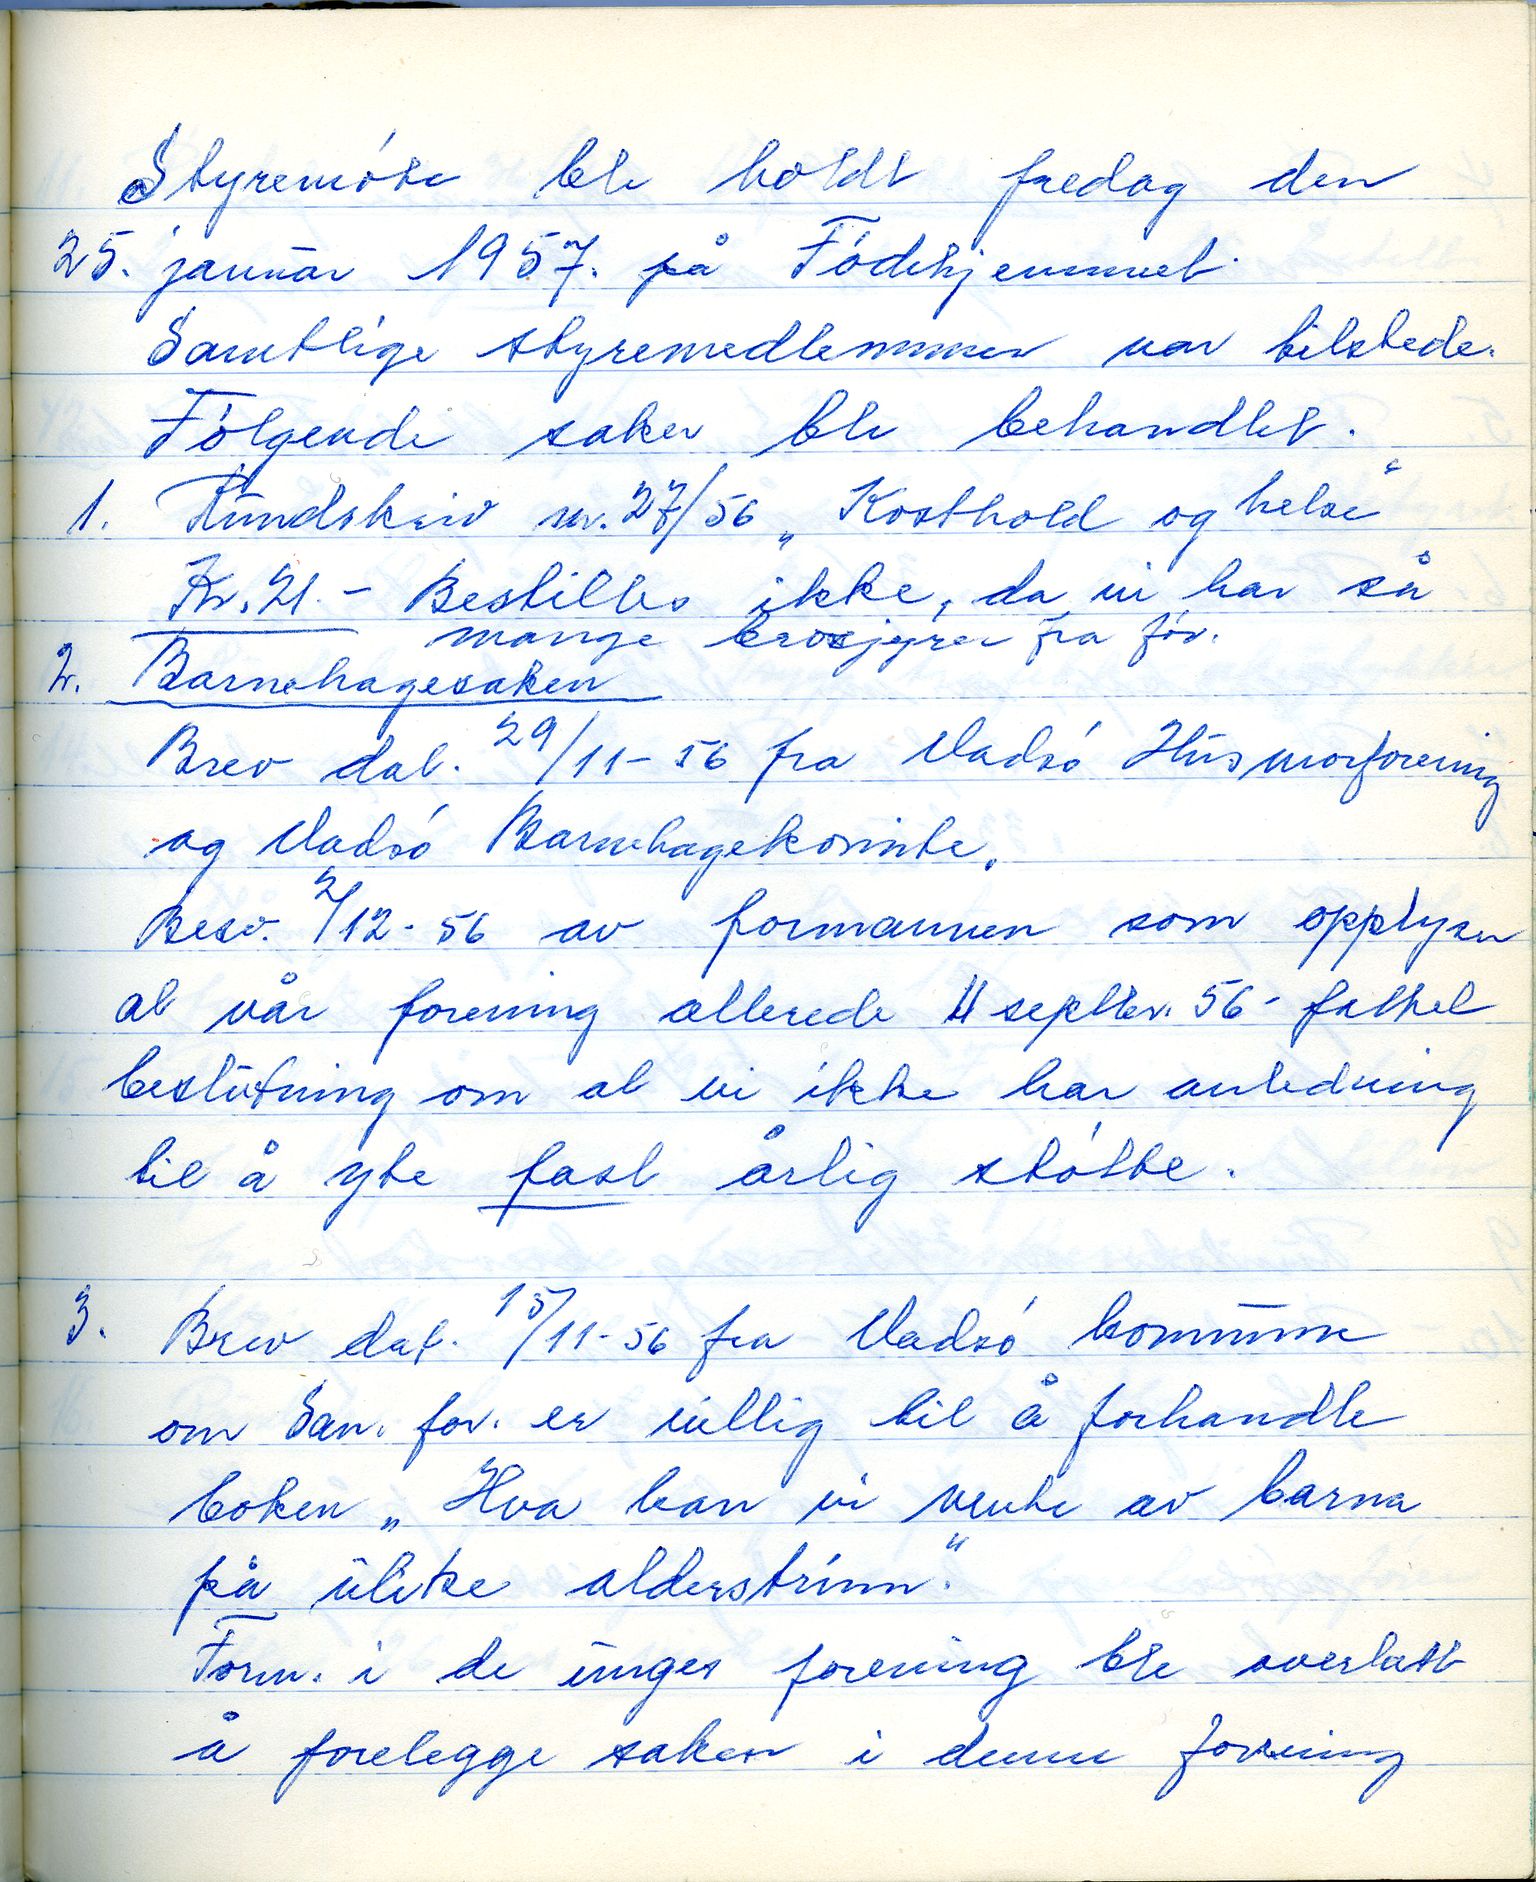 Styremøte ble holdt fredag den
25. januar 1957. på Fødehjemmet.
Samtlige styremedlemmer var tilstede.
Følgende saker ble behandlet.
1. Rundskriv nr. 27/56 „Kosthold og helse"
Kr. 21.- Bestilles ikke, da vi har så
mange brosjyrer fra før.
2. Barnehagesaken
Brev dat. 29/11-56 fra Vadsø Husmorforening
og Vadsø Barnehagekomite.
Besv. 2/12-56 av formannen som opplyser
at vår forening allerede 11 septbr. 56- fattet
beslutning om at vi ikke har anledning
til å yte fast årlig støtte.
3. Brev dat. 15/11-56 fra Vadsø kommune
om San. for. er villig til å forhandle
boken „Hva kan vi vente av barna
på ulike alderstrinn."
Form. i de unges forening ble overlatt
å forelegge saken i denne forening